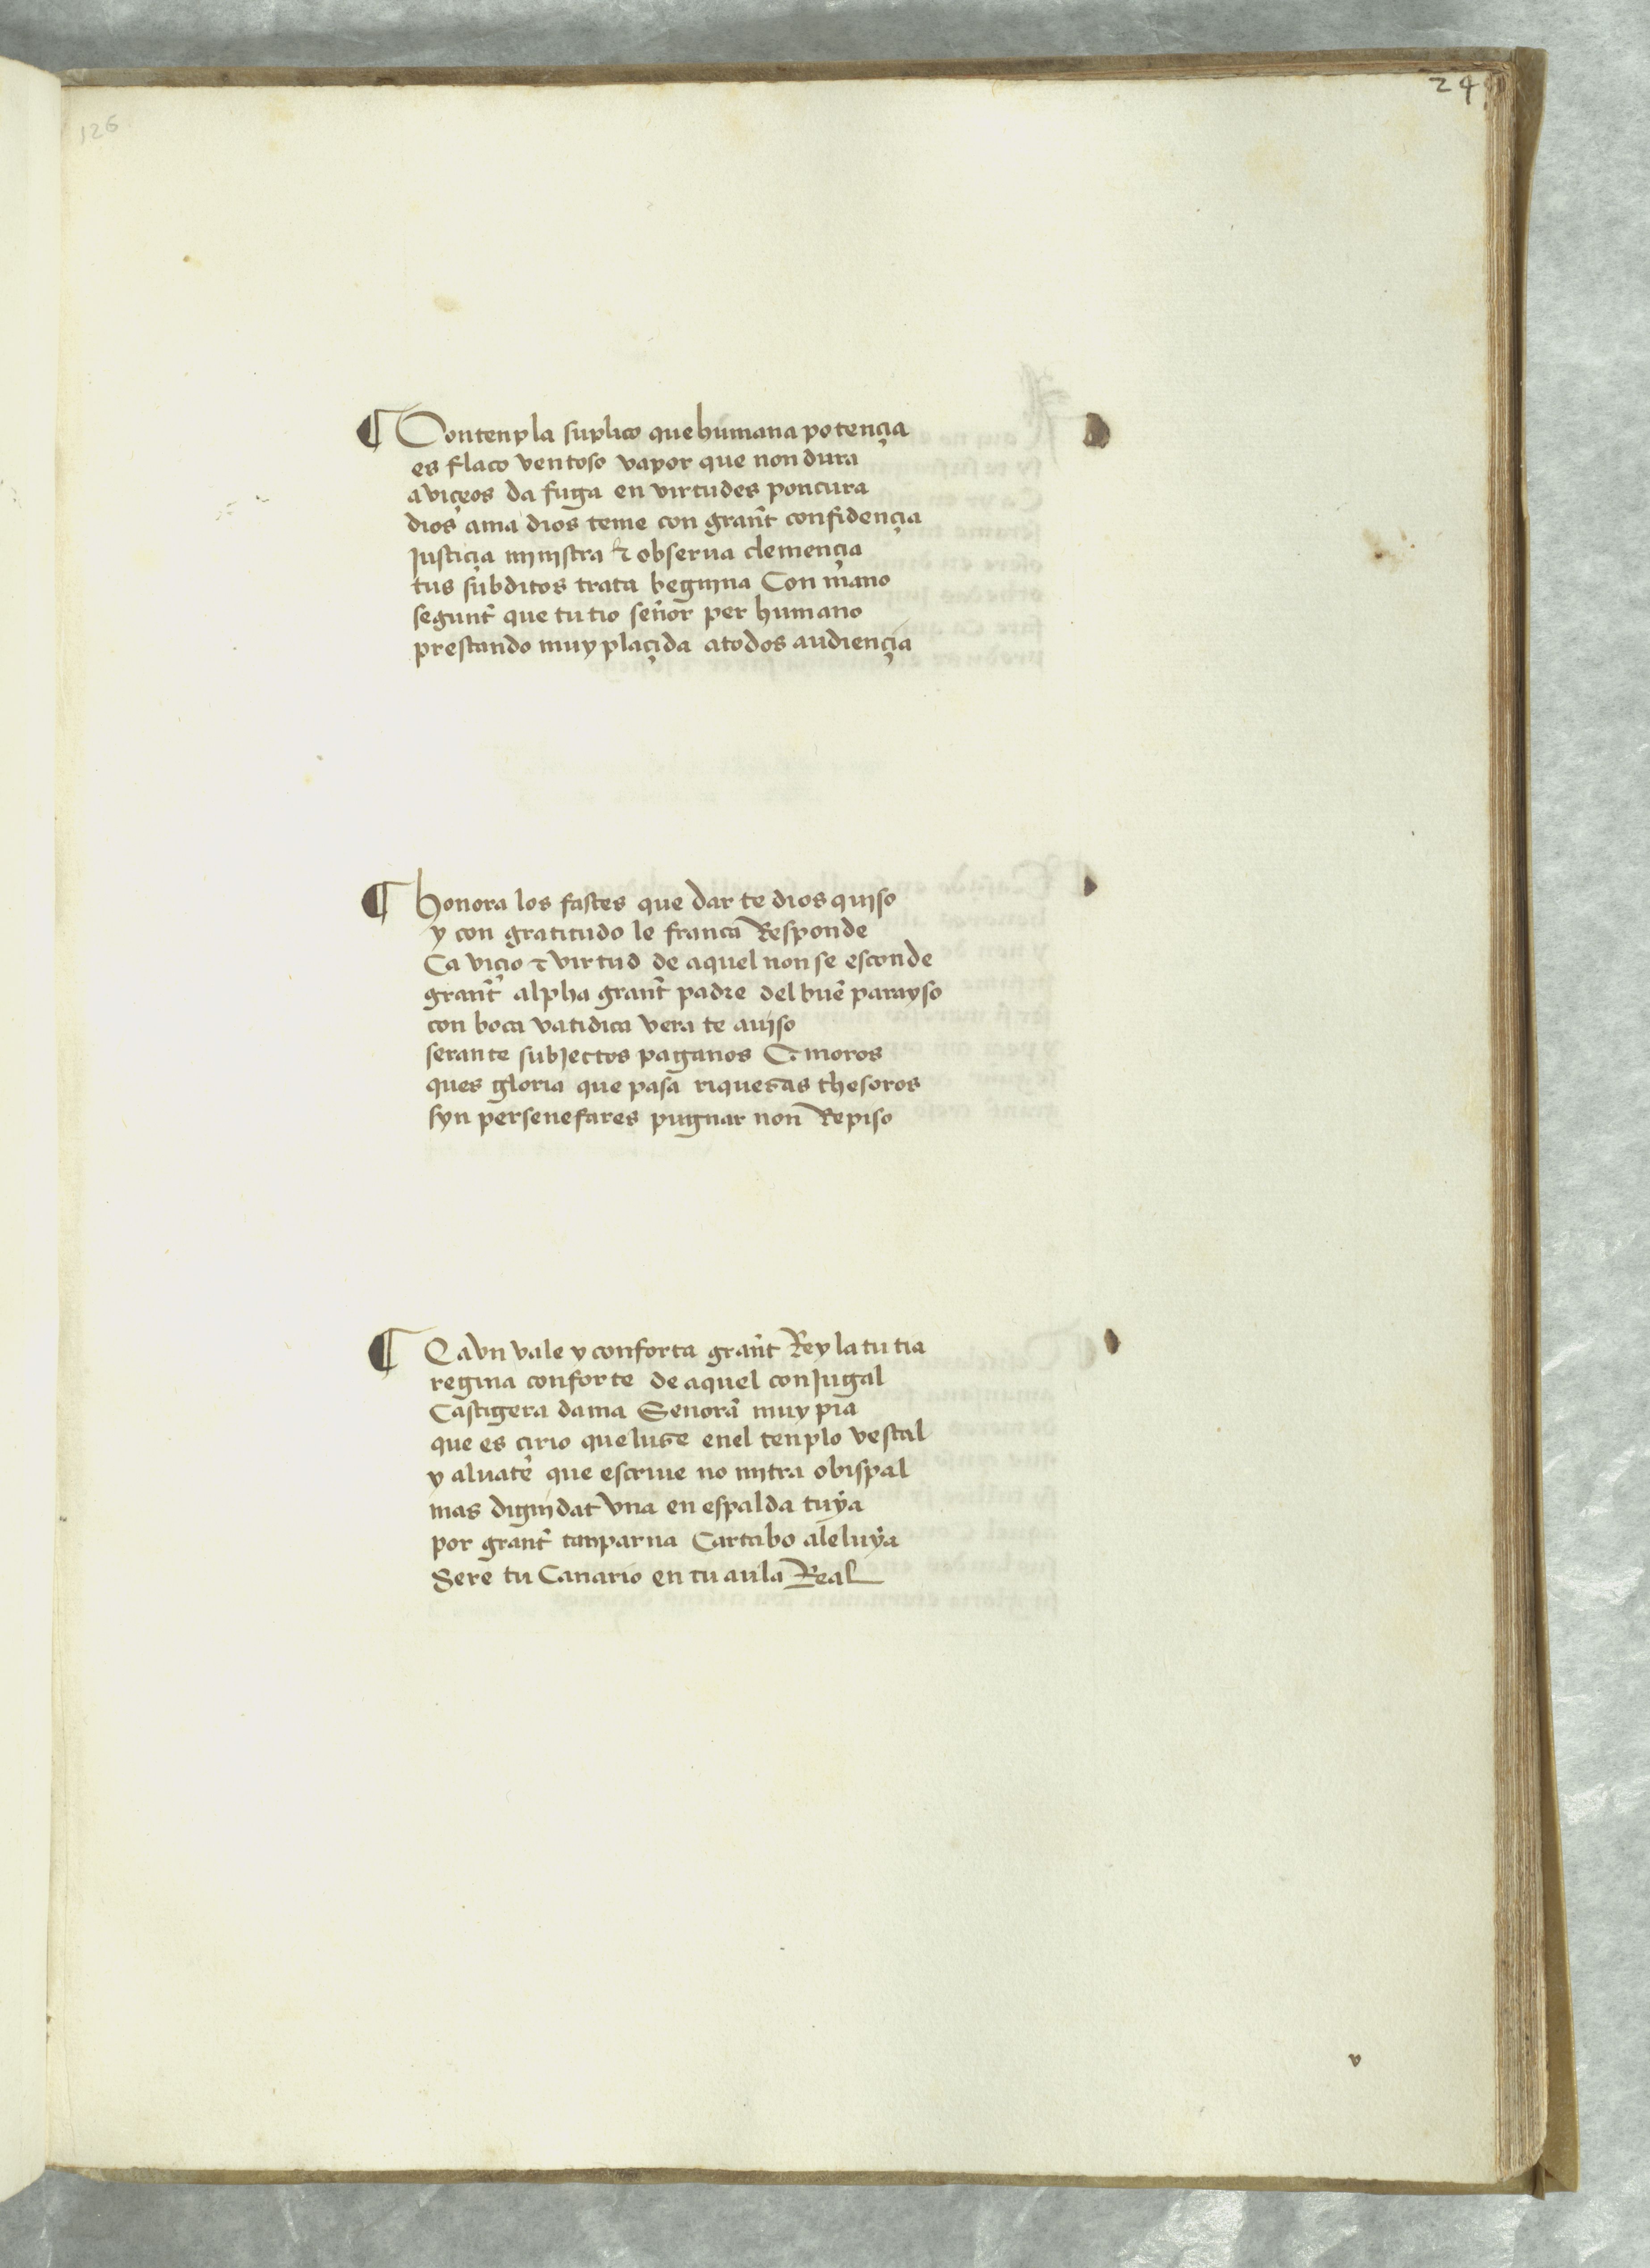 24
126
¶ Contenpla suplico que humana potençia
es flaco ventoso vapor que non dura
a viçeos da fuga en virtudes poncura
dios ama dios teme con grant confidençia
Justiçia ministra & obserua clemençia
tus subditos trata begnina Con mano
segunt que tu tio señor per humano
prestando muy plaçida atodos audiençia
¶ honora los fastes que dar te dios quiso
y con gratitudo le franca Responde
Ca viçio & virtud de aquel non se esconde
grant alpha grant padre del buẽ parayso
con boca vatidica vera te auiso
seran te subjectos paganos & moros
ques gloria que pasa riquezas thesoros
syn persenefares pugnar non Repiso
¶ Qavn vale y conforta grant Rey la tu tia
regina conforte de aquel conJugal
Castigera dama Senora muy pia
que es cirio que luze enel tenplo vestal
y al vate que escriue no mitra obispal
mas dignidat vna en espalda tuya
por grant tanparna Cartabo aleluya
Sere tu Canario en tu aula Real
v